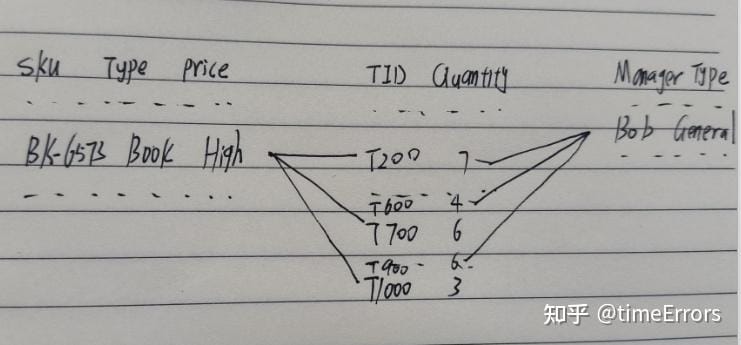 Sku Type price TID Quantity Manager Type
BK-6573 Book High T200 7 Bob General
T600 4
T700 6
T900 6
T1000 3
知乎 @timeErrors